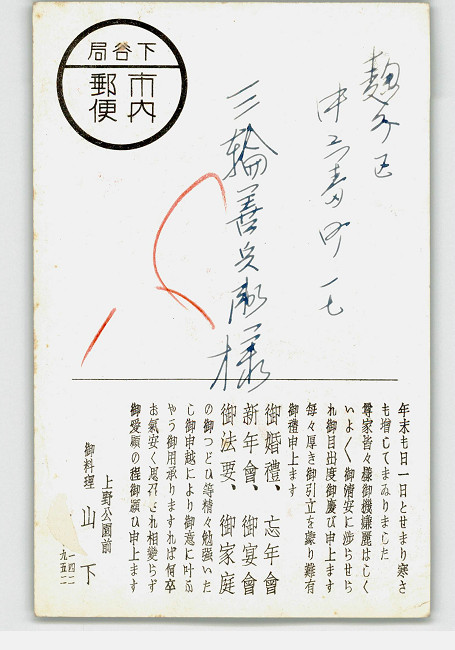 下谷局
市内
郵便
麹町区
中六番町一七
三輪善兵衛様
年末も日一日とせまり寒さ
も增してまゐりました
尊家皆々樣御機嫌麗はしく
いよ〱御淸安に涉らせら
れ御目出度御慶び申上ます
每々厚き御引立を蒙り難有
御禮申上ます
御婚禮、忘年會
新年會、御宴會
御法要、御家庭
の御つどひ等精々勉强いた
し御申越により御意に叶ふ
やう御用承りますれば何卒
お氣安く思召され相變らず
御愛顧の程御願ひ申上ます
上野公園前
御料理 山下
一四二
九五二